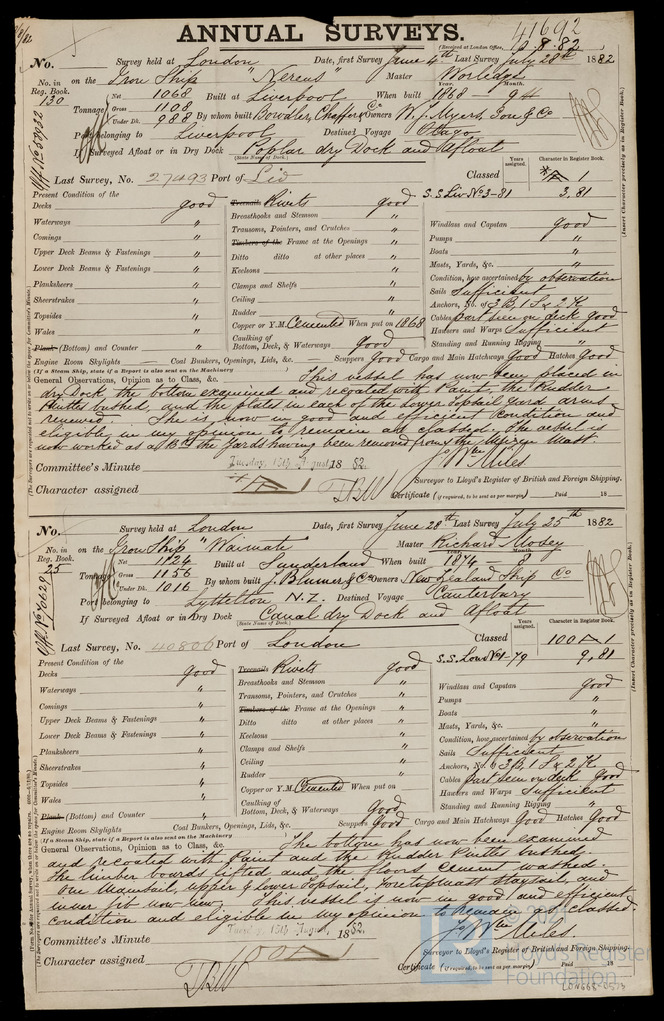 ANNUAL SURVEYS.
41692
(Received at London Office, 12.8.82
No. Survey held at London Date, first Survey June 4th Last Survey July 28th 1882
No. in Reg. Book. 130 on the Iron Ship "Nereus" Master Worledge
Tonnage Net 1068 Built at Liverpool When built Year. 1868 Month. 9
Gross 1108
Under Dk. 988 By whom built Bowdler, Chaffer & Co Owners W. J. Myers, Son & Co
Port belonging to Liverpool Destined Voyage Otago
If Surveyed Afloat or in Dry Dock Poplar dry Dock and Afloat
(State Name of Dock.)
Years assigned. Character in Register Book.
Last Survey, No. 27493 Port of Liv Classed A 1
S.S. Liv No 3-81 3,81
Present Condition of the
Decks good
Waterways "
Comings "
Upper Deck Beams & Fastenings "
Lower Deck Beams & Fastenings "
Planksheers "
Sheerstrakes "
Topsides "
Wales "
Plank (Bottom) and Counter "
Treenails Rivets good
Breasthooks and Stemson "
Transoms, Pointers, and Crutches "
Timbers of the Frame at the Openings "
Ditto ditto at other places "
Keelsons "
Clamps and Shelfs "
Ceiling "
Rudder "
Copper or Y.M. Cemented When put on 1868
Caulking of Bottom, Deck, & Waterways good
Windlass and Capstan good
Pumps "
Boats "
Masts, Yards, &c. "
Condition, how ascertained by observation
Sails Sufficient
Anchors, No. of 3 B, 1 S & 2 K
Cables part seen on deck good
Hawsers and Warps Sufficient
Standing and Running Rigging "
Engine Room Skylights — Coal Bunkers, Openings, Lids, &c. — Scuppers Good Cargo and Main Hatchways Good Hatches Good
(If a Steam Ship, state if a Report is also sent on the Machinery
General Observations, Opinion as to Class, &c. This vessel has now been placed in
dry dock, the bottom examined and recoated with Paint, the Rudder
Pintles bushed, and the plates in each of the lower Topsail yard arms
renewed. She is now in good and efficient condition and
eligible in my opinion to remain as classed. The vessel is
now worked as a Bq the yards having been removed from the Mizen Mast.
Committee's Minute Tuesday, 15th August, 1882.
Jo Wm Miles.
Surveyor to Lloyd's Register of British and Foreign Shipping.
Character assigned A 1
Certificate (if required, to be sent as per margin) Paid 18
No. Survey held at London Date, first Survey June 28th Last Survey July 25th 1882
No. in Reg. Book. 25 on the Iron Ship "Waimate" Master Richard Mosey
Tonnage Net 1124 Built at Sunderland When built Year. 1874 Month. 8
Gross 1156
Under Dk. 1016 By whom built J. Blumer & Co Owners New Zealand Ship Co
Port belonging to Lyttelton N.Z. Destined Voyage Canterbury
If Surveyed Afloat or in Dry Dock Canal dry Dock and Afloat
(State Name of Dock.)
Years assigned. Character in Register Book.
Last Survey, No. 40806 Port of London Classed 100 A 1
S.S. Lon No 1-79 9,81
Present Condition of the
Decks good
Waterways "
Comings "
Upper Deck Beams & Fastenings "
Lower Deck Beams & Fastenings "
Planksheers "
Sheerstrakes "
Topsides "
Wales "
Plank (Bottom) and Counter "
Treenails Rivets good
Breasthooks and Stemson "
Transoms, Pointers, and Crutches "
Timbers of the Frame at the Openings "
Ditto ditto at other places "
Keelsons "
Clamps and Shelfs "
Ceiling "
Rudder "
Copper or Y.M. Cemented When put on
Caulking of Bottom, Deck, & Waterways Good
Windlass and Capstan good
Pumps "
Boats "
Masts, Yards, &c. "
Condition, how ascertained by observation
Sails Sufficient
Anchors, No. of 3 B, 1 S & 2 K
Cables part seen on deck Good
Hawsers and Warps Sufficient
Standing and Running Rigging "
Engine Room Skylights Coal Bunkers, Openings, Lids, &c. Scuppers Good Cargo and Main Hatchways Good Hatches Good
(If a Steam Ship, state if a Report is also sent on the Machinery
General Observations, Opinion as to Class, &c. The bottom has now been examined
and recoated with Paint and the Rudder Pintles bushed.
The limber boards lifted and the floors cement washed.
One Mainsail, upper & lower Topsail, Foretopmast Staysail and
inner jib now new. This vessel is now in good and efficient
condition and eligible in my opinion to remain as classed
Committee's Minute Tuesday, 15th August, 1882.
Jo Wm Miles.
Surveyor to Lloyd's Register of British and Foreign Shipping.
Character assigned 100 A 1
Certificate (if required, to be sent as per margin) Paid 18
Lloyd's Register
Foundation
(Insert Character precisely as in Register Book.)
(Insert Character precisely as in Register Book.)